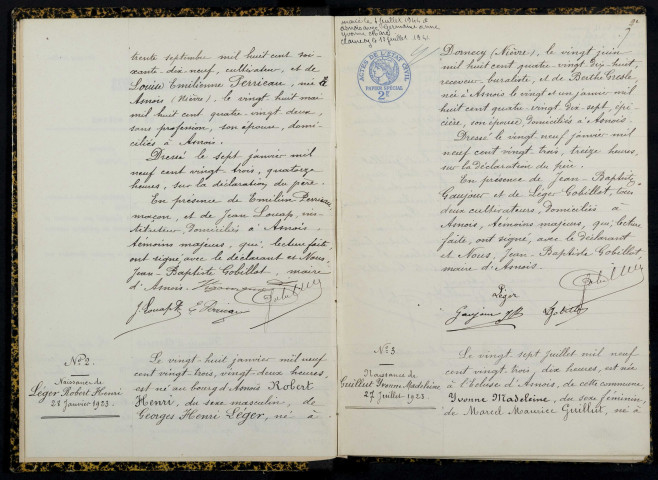 trente septembre mil huit cent soi-
xante dix neuf, cultivateur, et de
Louise Emilienne Perreau, née à
Asnois (Nièvre), le vingt huit mai
mil huit cent quatre-vingt-deux,
sans profession, son épouse, domi-
ciliés à Asnois.
Dressé le sept janvier mil
neuf cent vingt trois, quatorze
heures, sur la déclaration du père.
En présence de Emilien Perreau
maçon, et de Jean Louap, ins-
tituteur, domiciliés à Asnois.
témoins majeurs, qui, lecture faite,
ont signé avec le déclarant et Nous,
Jean-Baptiste Gobillot, maire
d'Asnois.
J. Louap
Nº 2.
Naissance de
Léger Robert Henri
28 Janvier 1923.
Le vingt-huit janvier mil neuf
cent vingt-trois, vingt-deux heures,
est né au bourg d'Asnois Robert
Henri, du sexe masculin, de
Georges Henri Léger, né à
marié le 4 juillet 1944 à
Yvonne
le 17 juillet
ACTES DE L'ETAT CIVIL
PAPIER SPECIAL
2F
Dornecy (Nièvre), le vingt juin
mil huit cent quatre-vingt dix-huit,
receveur buraliste, et de Berthe
née à Asnois le vingt et un janvier mil
huit cent quatre-vingt dix-sept, épi-
cière, son épouse, domiciliés à Asnois.
Dressé le vingt neuf janvier mil
neuf cent vingt trois, treize heures,
sur la déclaration du père.
En présence de Jean-Baptiste
Gaujour et de Léger Gobillot, tous
deux cultivateurs, domiciliés à
Asnois, témoins majeurs, qui, lecture
faite, ont signé, avec le déclarant
et Nous, Jean-Baptiste Gobillot,
maire d'Asnois.
Léger
Gaujour
Nº 3
Naissance de
Guillut Yvonne Madeleine
27 Juillet 1923.
Le vingt sept Juillet mil neuf
cent vingt trois, dix heures, est née
à l'Ecluse d'Asnois, de cette commune
Yvonne Madeleine, du sexe féminin,
de Marcel Maurice Guillut, né à